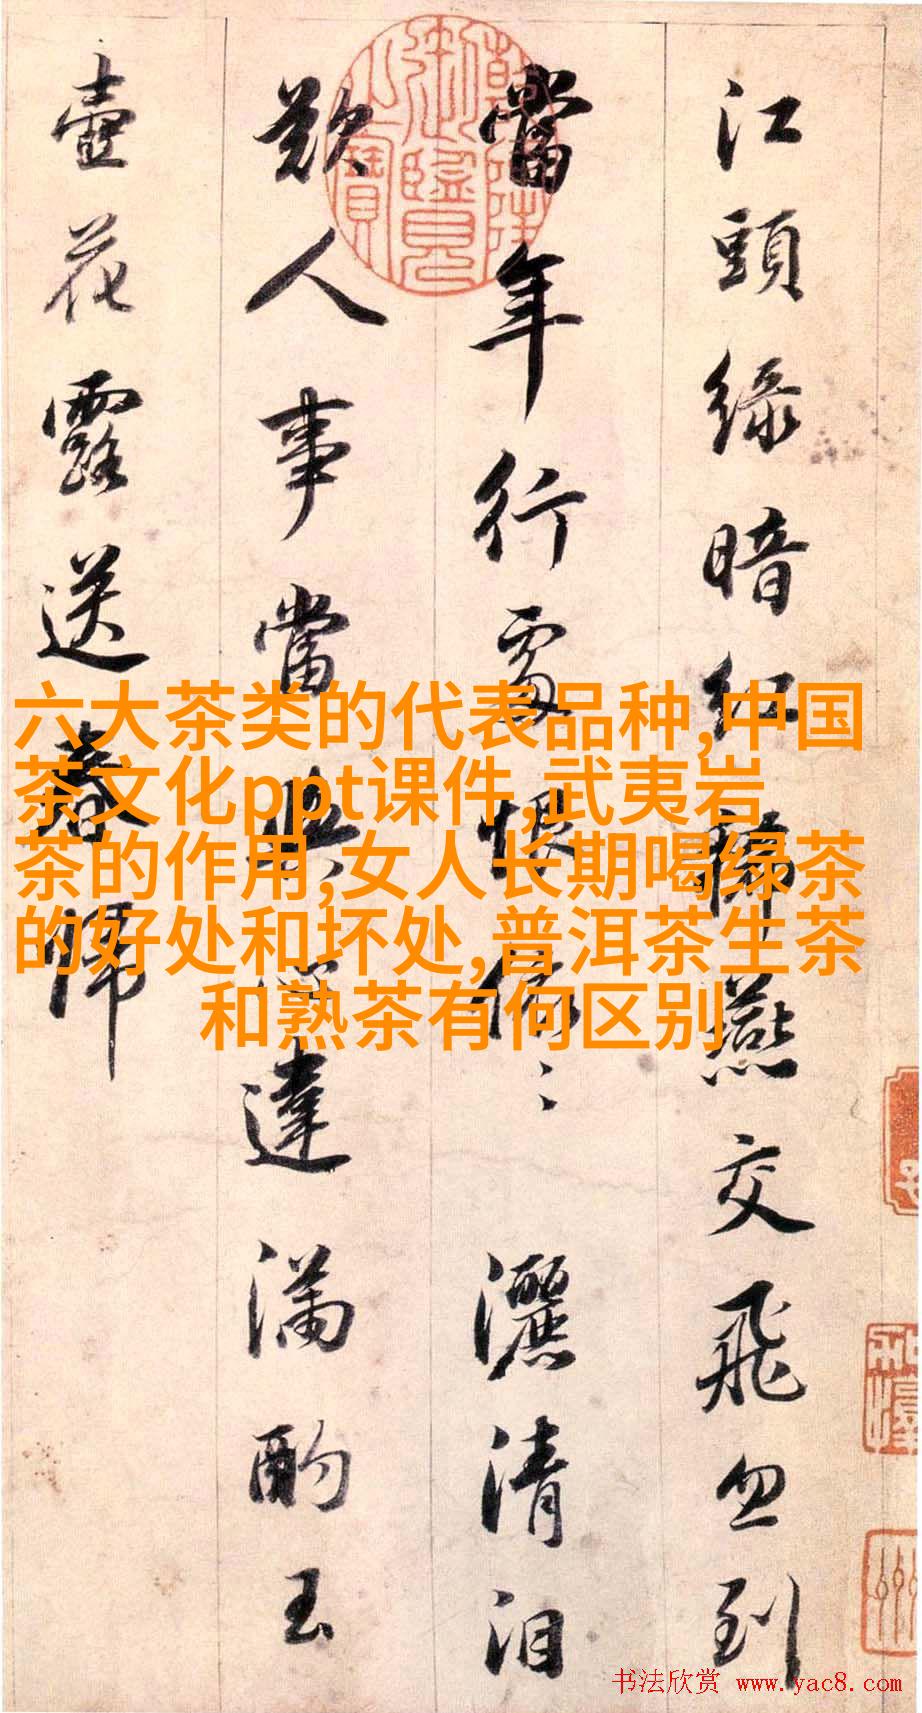 江頭綠暗紅稀燕交飛忽到
當年行處恨依〻灑清泪
歎人事當與心違滿酌玉
壺花露送春歸
乾隆御覽之寶
六大茶类的代表品种,中国
茶文化ppt课件,武夷岩
茶的作用,女人长期喝绿茶
的好处和坏处,普洱茶生茶
和熟茶有何区别
书法欣赏 www.yac8.com